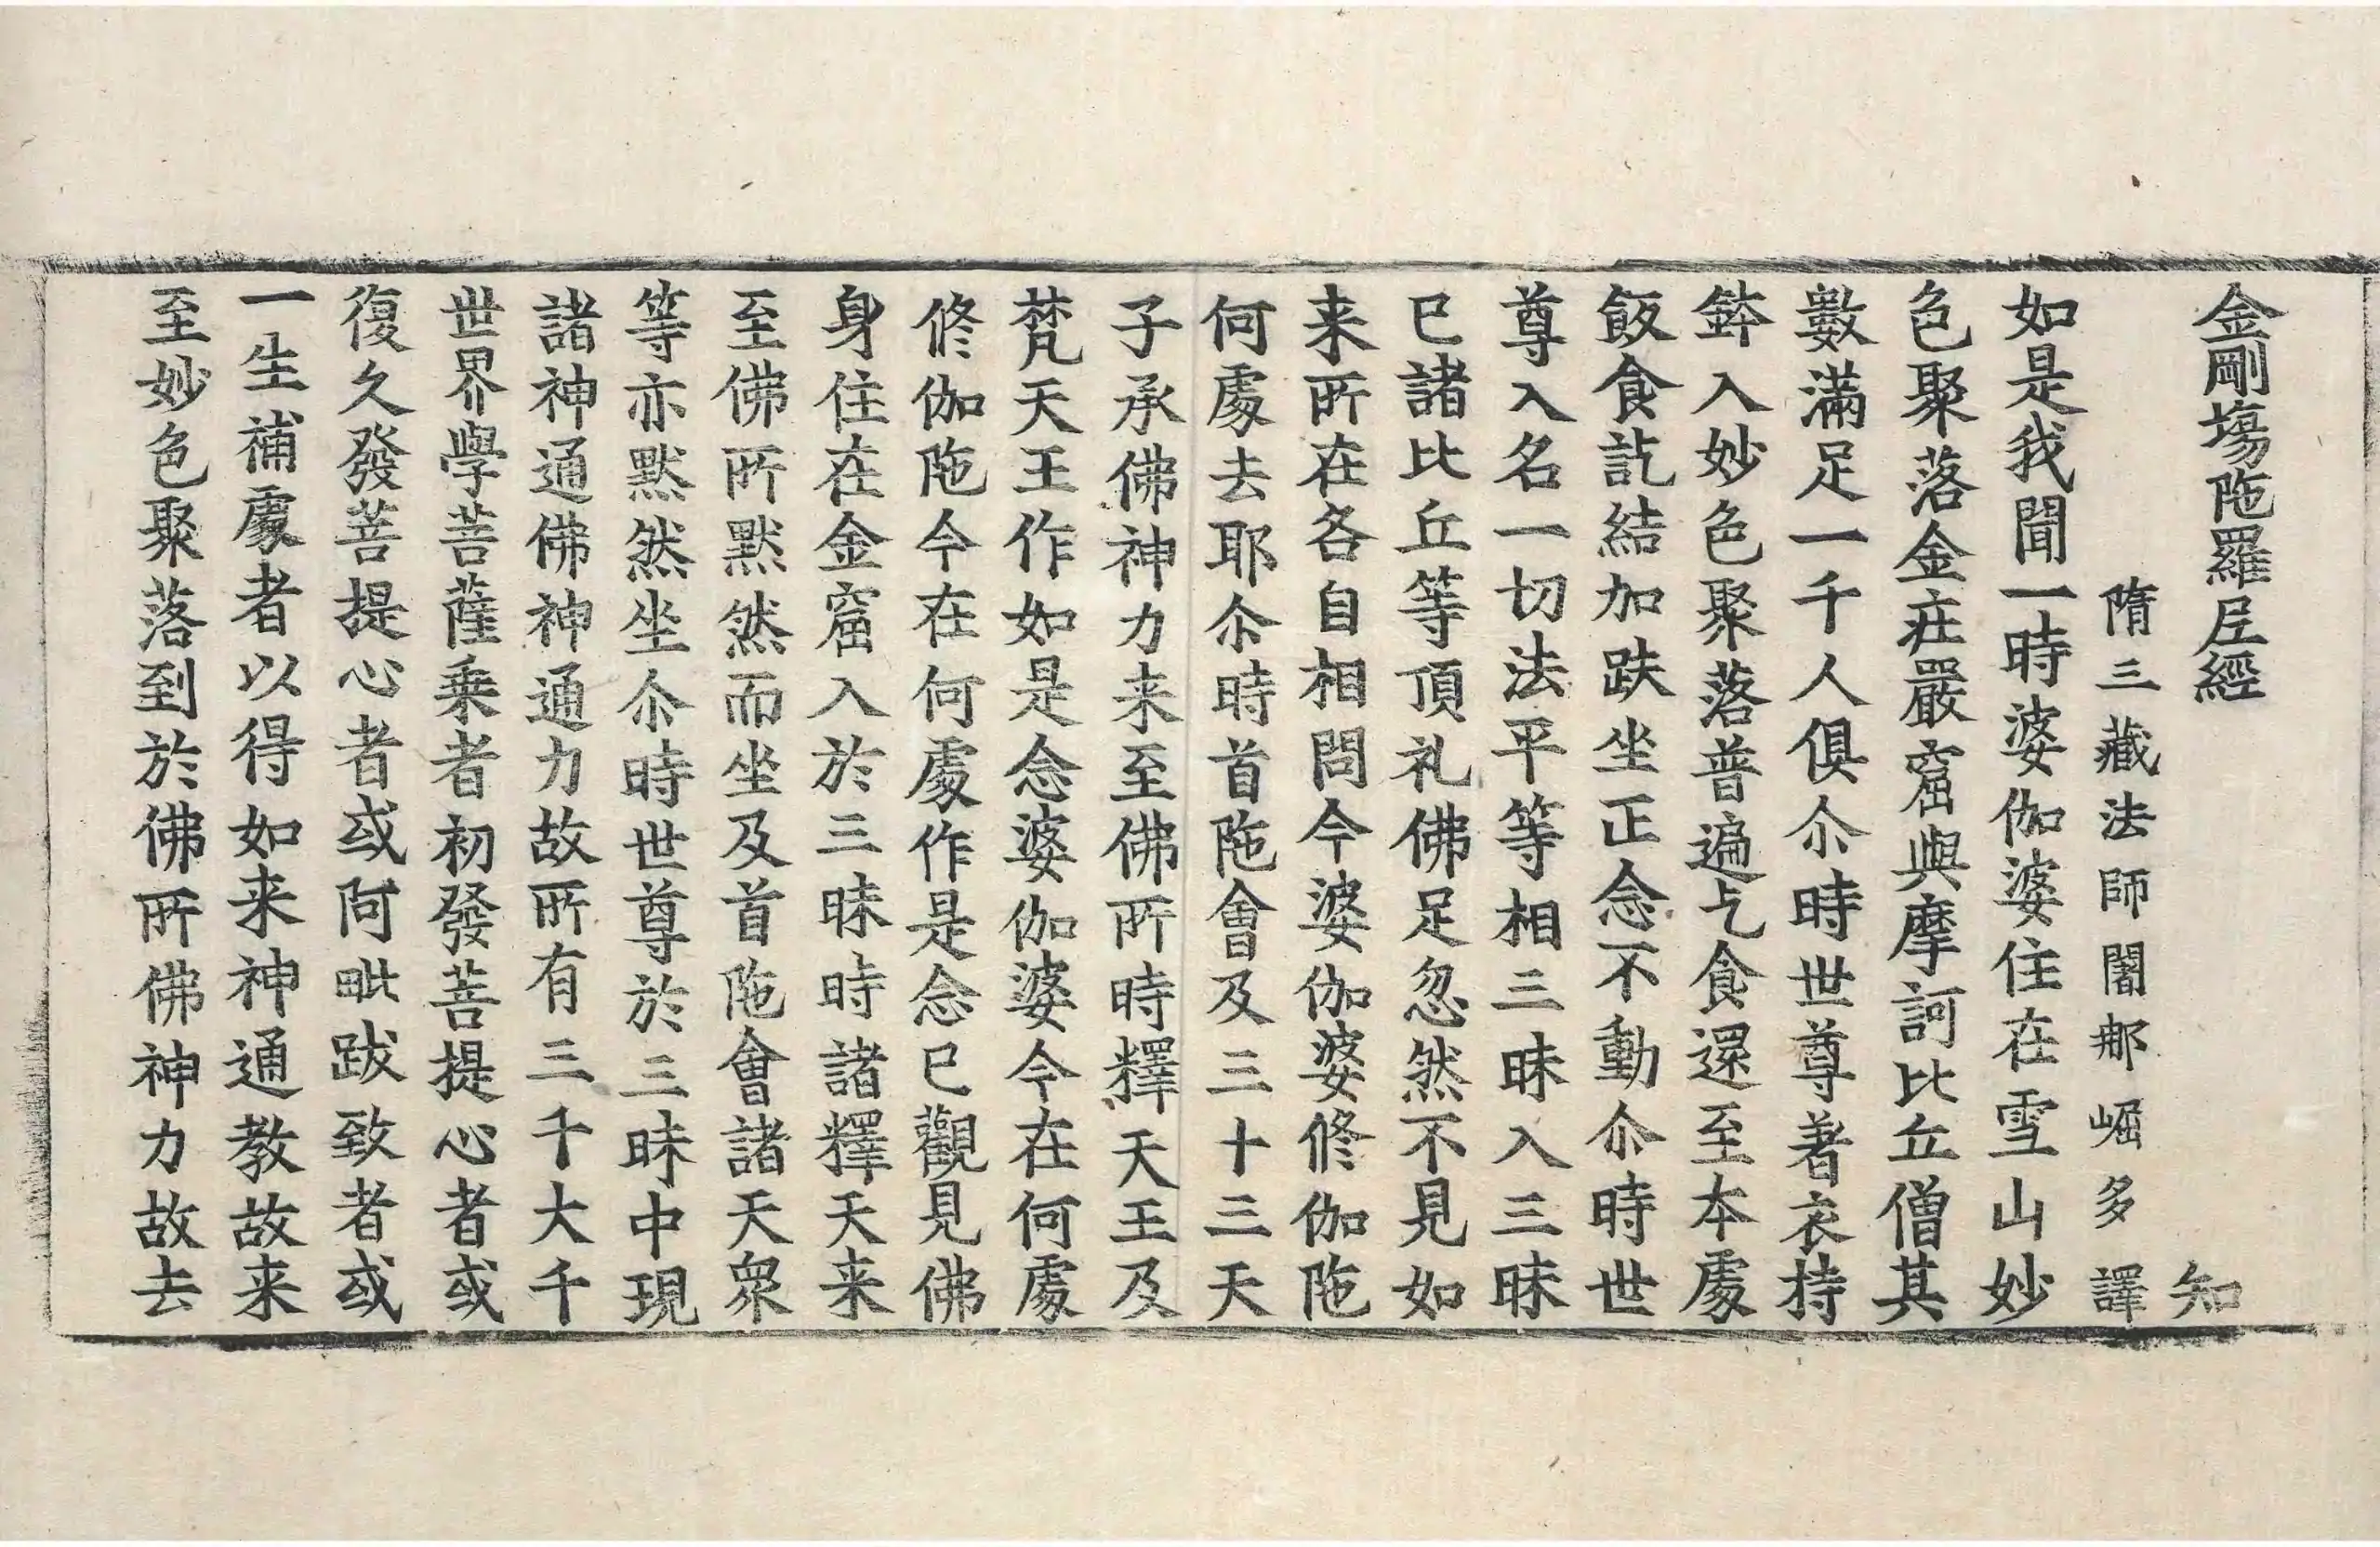 金剛場陁羅尼經　知
隋三藏法師闍那崛多譯
如是我聞一時婆伽婆住在雪山妙
色聚落金庄嚴窟與摩訶比丘僧其
數滿足一千人俱尒時世尊著衣持
鉢入妙色聚落普遍乞食還至本處
飯食訖結加趺坐正念不動尒時世
尊入名一切法平等相三昧入三昧
已諸比丘等頂礼佛足忽然不見如
来所在各自相問今婆伽婆修伽陁
何處去耶尒時首陁會及三十三天
子承佛神力来至佛所時釋天王及
梵天王作如是念婆伽婆今在何處
修伽陁今在何處作是念已觀見佛
身住在金窟入於三昧時諸釋天来
至佛所默然而坐及首陁會諸天衆
等亦默然坐尒時世尊於三昧中現
諸神通佛神通力故所有三千大千
世界學菩薩乗者初發菩提心者或
復久發菩提心者或阿毗跋致者或
一生補處者以得如来神通教故来
至妙色聚落到於佛所佛神力故去